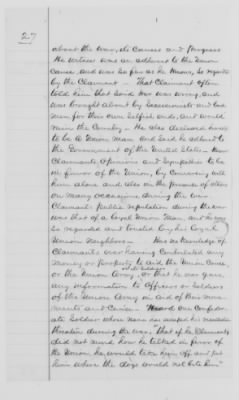 27
about the war, its Causes and Progress
He witness was an adherent to the Union
Cause, and was so far as he knows, so regarded
by the Claimant – That Claimant often
told him that said War was wrong, and
was brought about by Secessionists and bad
men for their own Selfish ends, and would
ruin the Country – He also declared himself
to be a Union man and said he adhered to
the Government of the United States –
Claimants Opinions and Sympathies to be
in favor of the Union, by Conversing with
him alone and also in the presence of others
on many occasions during the war
Claimants Public reputation during the war
was that of a Loyal Union Man, and he was
so regarded and treated by his Loyal
Union Neighbors – Has no Knowledge of
Claimants ever having Contributed any
money or property to aid the Union Cause
or the Union Army, or that he ever gave
any information to Officers or Soldiers
of the Union Army in aid of their move
ments and Cause – Heard one Confede
rate Soldier whose name has escaped his recollection
threaten during the war, "that if he, Claimant
did not mind how he talked in favor of
the Union, he would take him off and put
him where the dogs would not bite him"